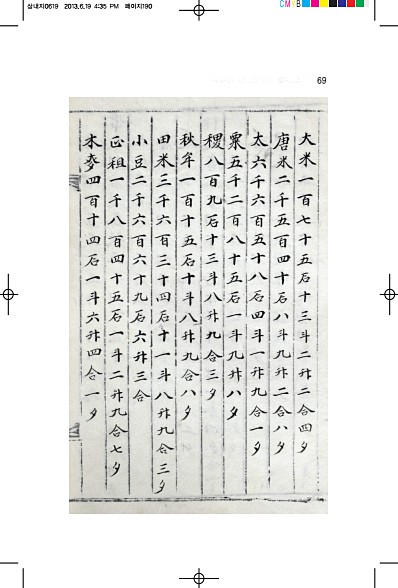 상내지0619 2013.6.19 4:35 PM 페이지190
CMYB
69
大米一百七十五石十三斗二升二合四夕
唐米二千五百四十石八斗九升二合八夕
太六千六百五十八石四斗一升九合一夕
粟五千二百八十五石一斗九升八夕
稷八百九石十三斗八升九合三夕
秋牟一百十五石十斗八升九合八夕
田米三千六百三十四石十一斗八升九合三夕
小豆二千六百六十九石六升三合
正租一千八百四十五石一斗二升九合七夕
木麥四百十四石一斗六升四合一夕